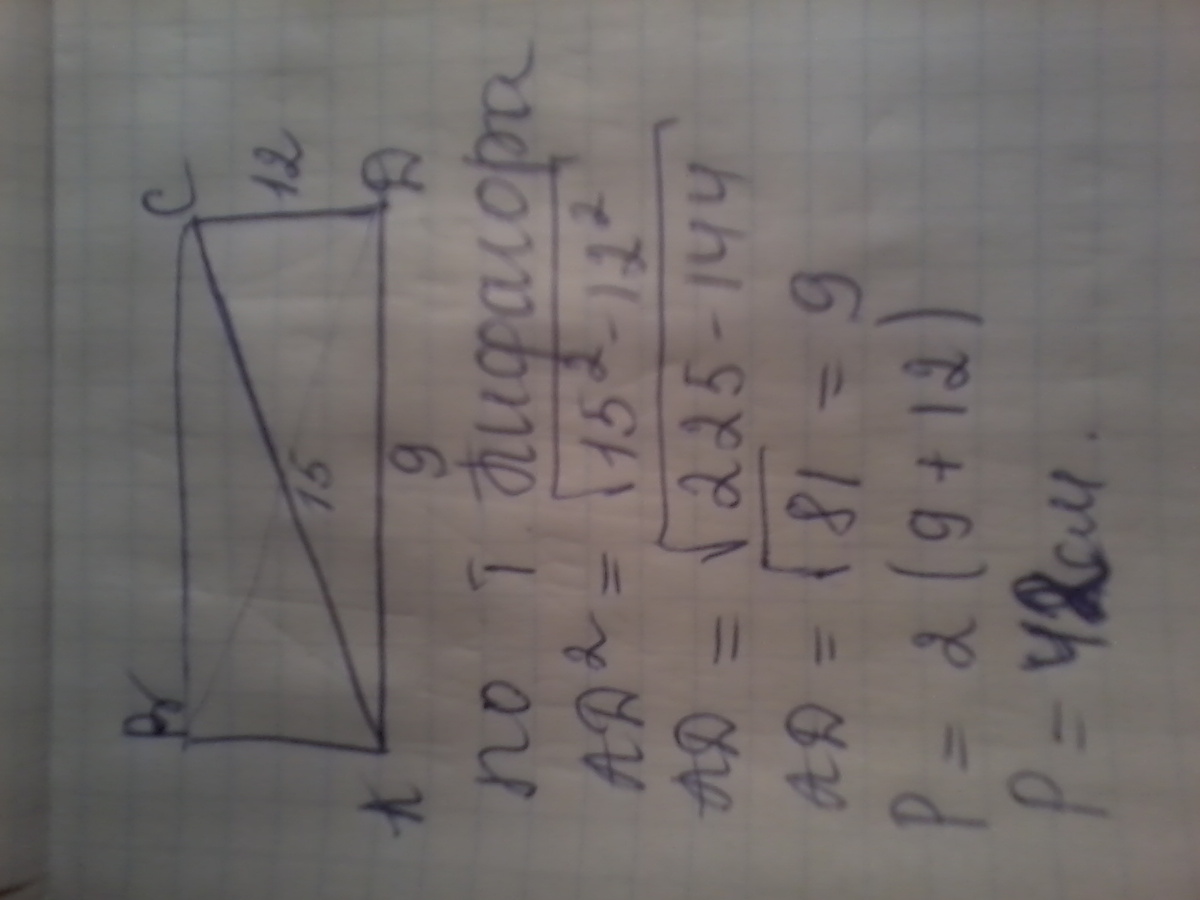 B C
12
15
A 9 D
по т Пифагора
AD² = √15² - 12²
AD = √225 - 144
AD = √81 = 9
P = 2 (9 + 12)
P = 42 см.